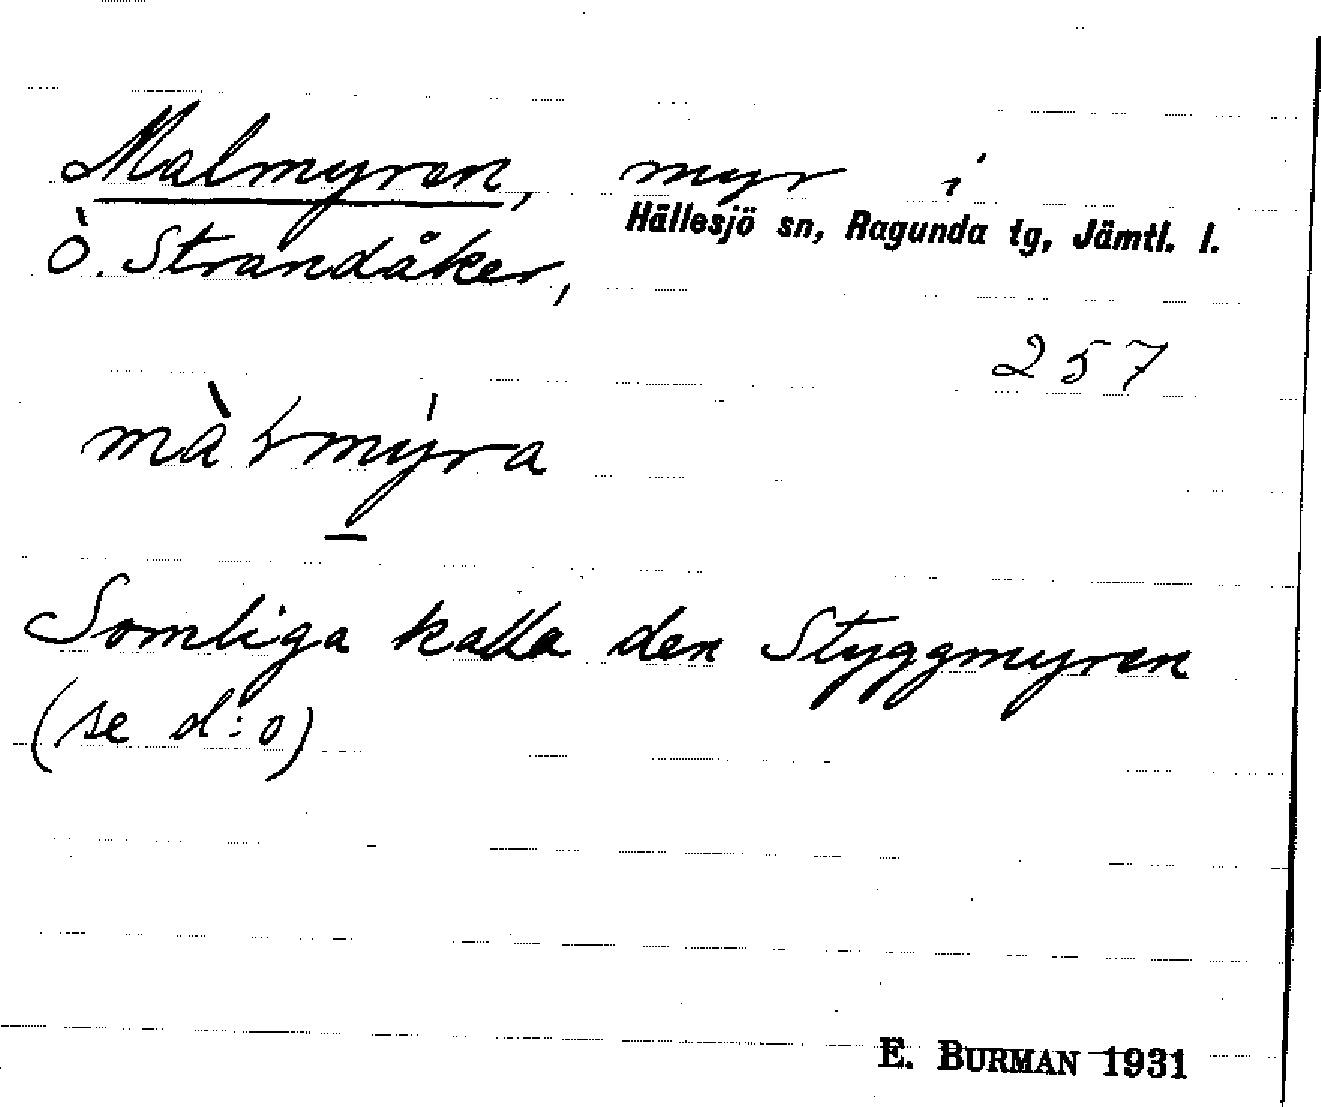 Malmyren, myr i
Hällesjö sn, Ragunda tg, Jämtl. l.
Ö. Strandåker,
257
màɽmýra
Somliga kalla den Styggmyren
(se d:o)
E. BURMAN 1931